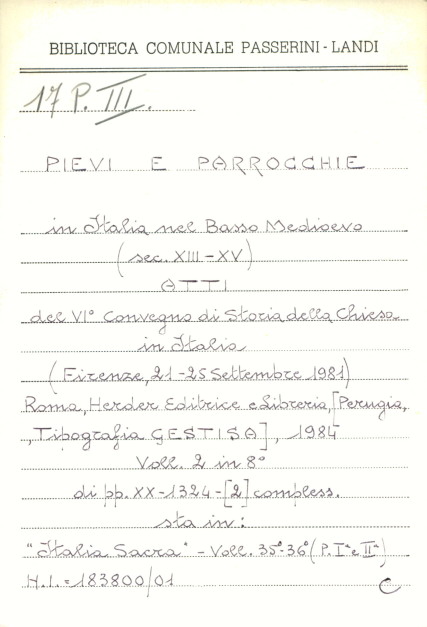 BIBLIOTECA COMUNALE PASSERINI - LANDI
17 P. III.
PIEVI E PARROCCHIE
in Italia nel Basso Medioevo
(sec. XIII-XV)
ATTI
del VI° Convegno di Storia della Chiesa
in Italia
(Firenze, 21-25 Settembre 1981)
Roma, Herder Editrice e Libreria, [Perugia,
Tipografia GESTISA], 1984
Voll. 2 in 8°
di pp. XX-1324-[2] compless.
sta in:
"Italia Sacra" - Voll. 35°-36° (P. Iª e IIª)
H.I. = 183800/01
C